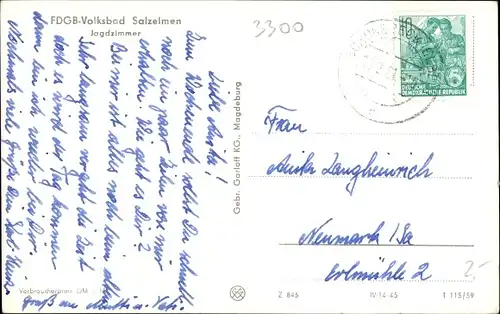 FDGB-Volksbad Salzelmen
Jagdzimmer
3300
Liebe Anita!
Zum Wochenende sollst Du schnell
noch ein paar Zeilen von mir
erhalten. Wie geht es Dir?
Bei mir ist alles noch beim alten.
Sehr langsam vergeht die Zeit
doch es wird der Tag kommen
dann bin ich wieder bei Dir.
Nochmals viele Grüße Dein
Gruß an Mutti u. Vati.
Verbraucherpreis DM
Gebr. Garloff KG., Magdeburg
10
DEUTSCHE
DEMOKRATISCHE REPUBLIK
Frau
Anita Langheinrich
Neumark / Sa
Erlmühle 2
2,-
Z 846
IV-14-45
T 115/59